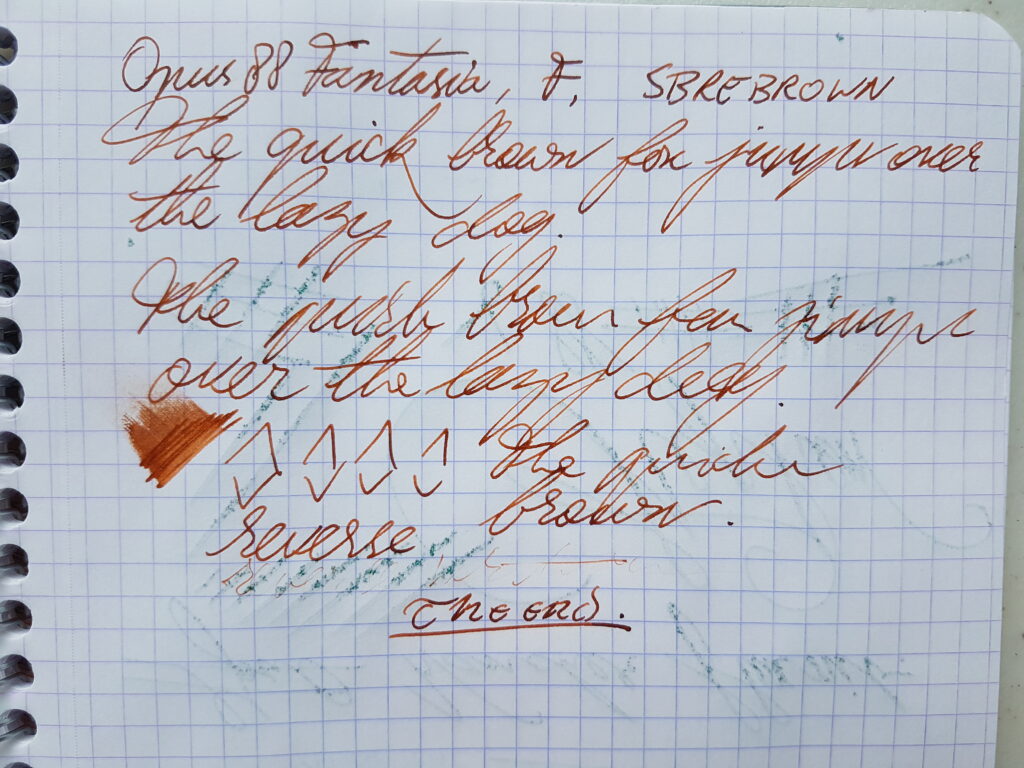 Opus 88 Fantasia, F, SBREBROWN
The quick brown fox jumps over
the lazy dog.
The quick brown fox jumps
over the lazy dog.
The quick
brown.
reverse
THE END.